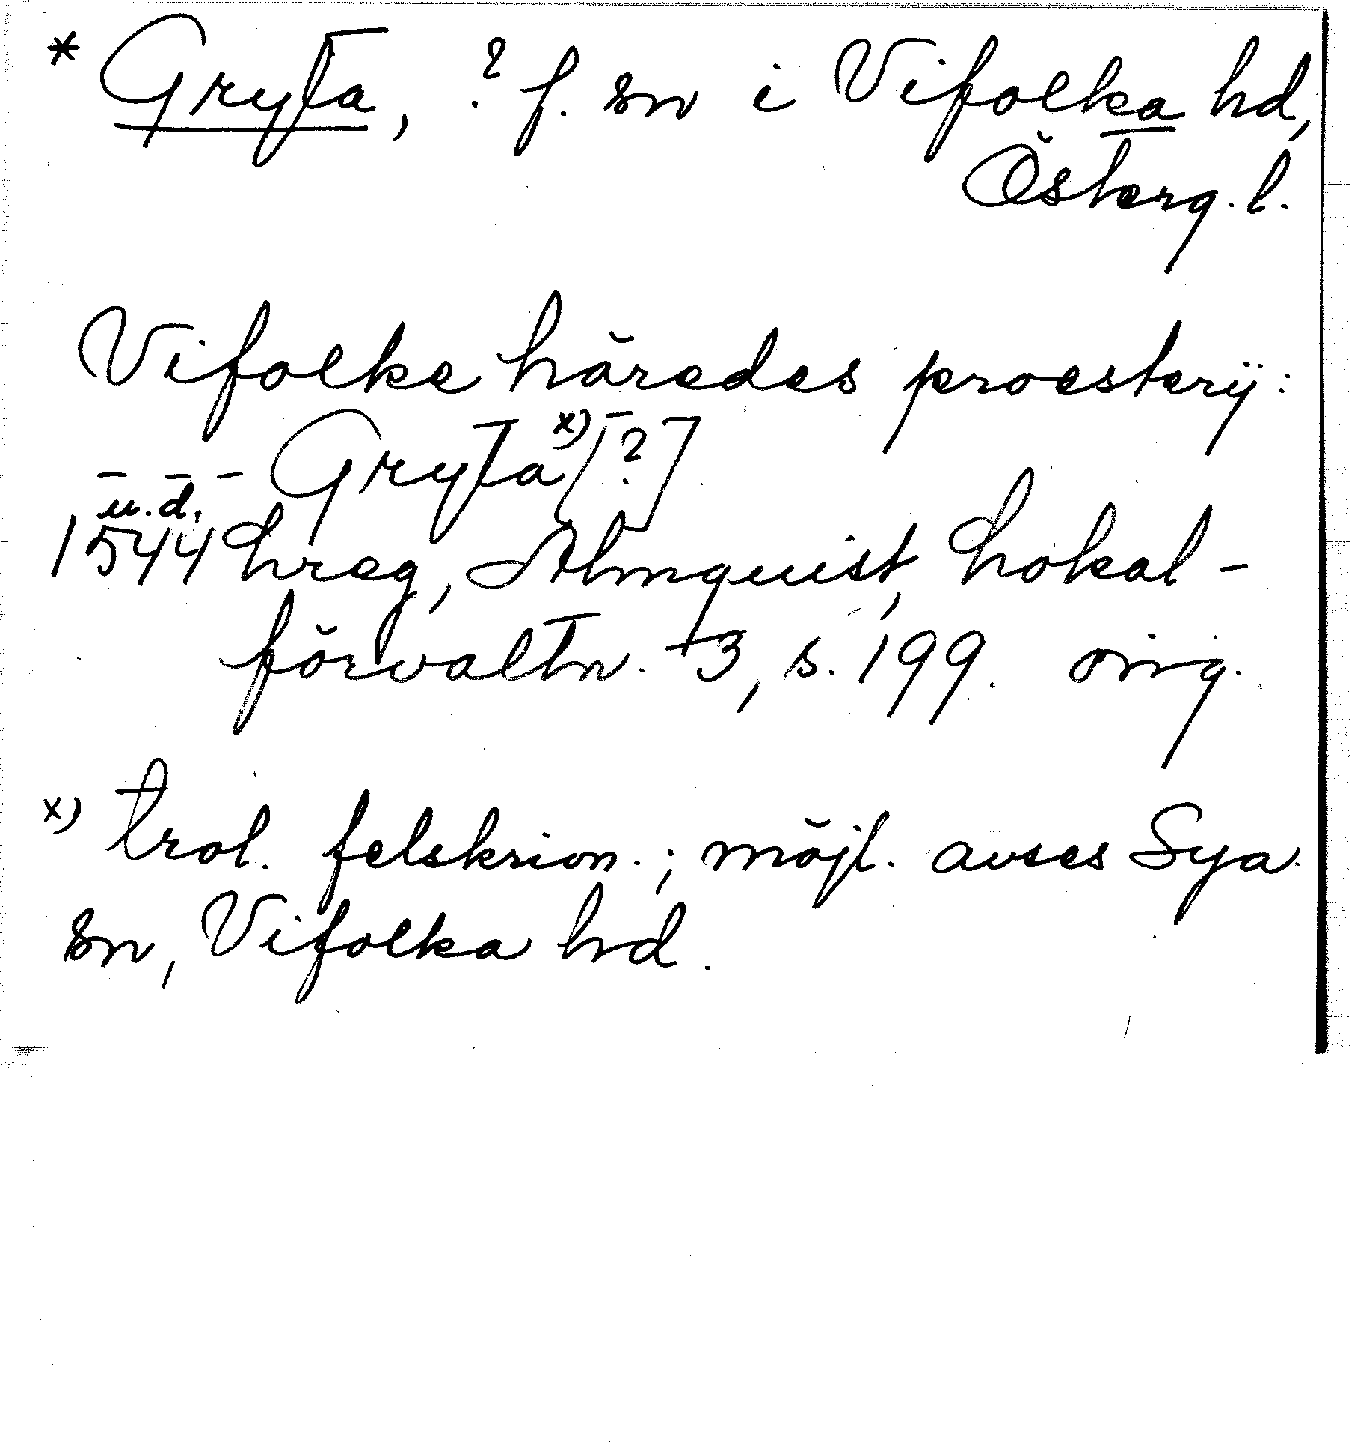 * Gryta, ? f. sn i Vifolka hd,
Österg. l.
Vifolke häredes proesterij:
- - - Gryta x) [?]
u.d.
1544 hreg, Almquist, Lokal-
förvaltn. 3, s. 199. orig.
x) trol. felskrivn.; möjl. avses Sya
sn, Vifolka hd.